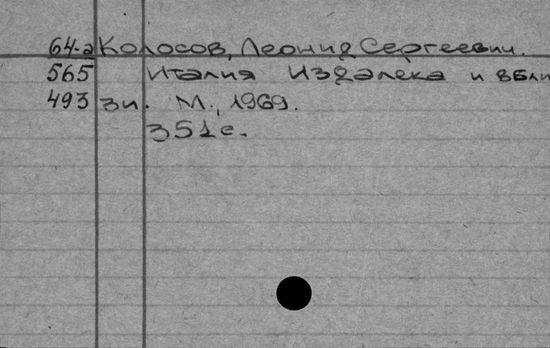 64-а Колосов, Леонид Сергеевич.
565 Италия издалека и вбли
493 зи. М., 1969.
351с.